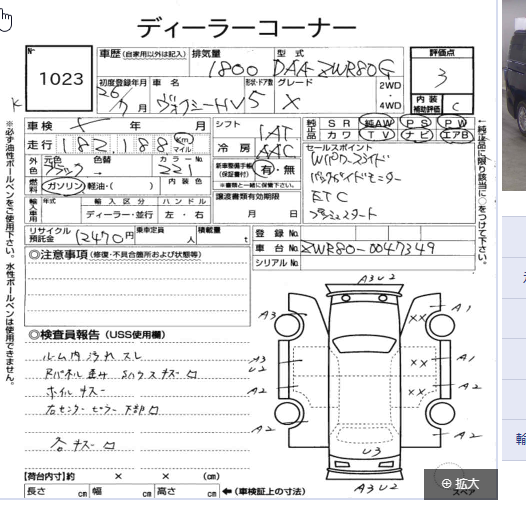 ディーラーコーナー
№
1023
車歴 (自家用以外は記入)
排気量
1800
型式
DAA-ZWR80G
評価点
3
内装
補助評価
C
初度登録年月
26/7月
車名
ヴォクシーHV
形状・ドア数
5
グレード
X
2WD
・
4WD
車検
年 月
シフト
IAT
純正品
SR
純AW
PS
PW
カワ
TV
ナビ
エアB
走行
182,188
km
マイル
冷房
AAC
セールスポイント
Wパワースライド
バックガイドモニター
ETC
プッシュスタート
外色
元色
ブラック
色替
カラーNo.
221
新車整備手帳
(保証書付)
有・無
※書類と一緒に保管下さい。
燃料
ガソリン・軽油・( )
内装色
輸入車用
年式
輸入区分
ハンドル
ディーラー・並行
左・右
譲渡書類有効期限
月 日
リサイクル
預託金
12470円
乗車定員
人
積載量
t
登録No.
車台No.
ZWR80-0047349
シリアルNo.
※必ず油性ボールペンをご使用下さい。水性ボールペンは使用できません。
←純正品に限り該当に○をつけて下さい。
◎注意事項 (修復・不具合箇所および状態等)
◎検査員報告 (USS使用欄)
ルーム内汚れ スレ
ホイルキズ
右センターピラー下部ロ
各キズロ
A3U2
A3
A1
××
A3
U2
A1
××
A2
A2
A2
A2
U3
A3U2
【荷台内寸】約 × × (cm)
長さ cm
幅 cm
高さ cm
←(車検証上の寸法)
スペア
拡大
輸